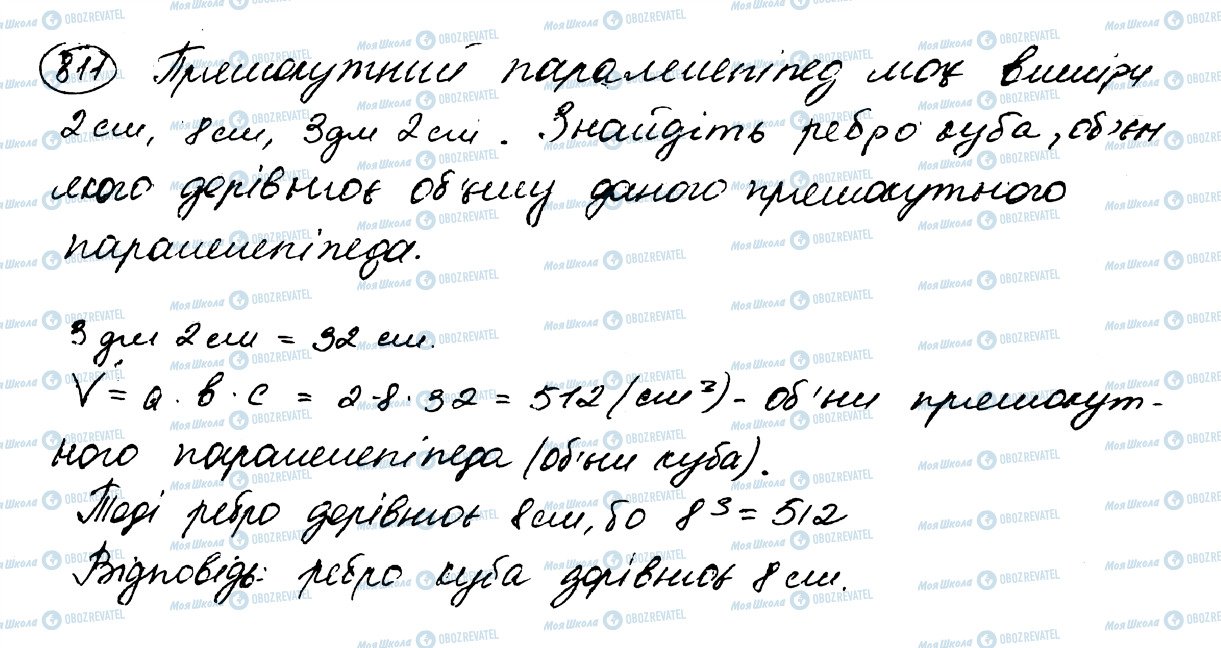 811 Прямокутний паралелепіпед має виміри
2 см, 8 см, 3 дм 2 см. Знайдіть ребро куба, об'єм
якого дорівнює об'єму даного прямокутного
паралелепіпеда.
3 дм 2 см = 32 см.
V = a · b · c = 2 · 8 · 32 = 512 (см³) - об'єм прямокут-
ного паралелепіпеда (об'єм куба).
Тоді ребро дорівнює 8 см, бо 8³ = 512
Відповідь: ребро куба дорівнює 8 см.